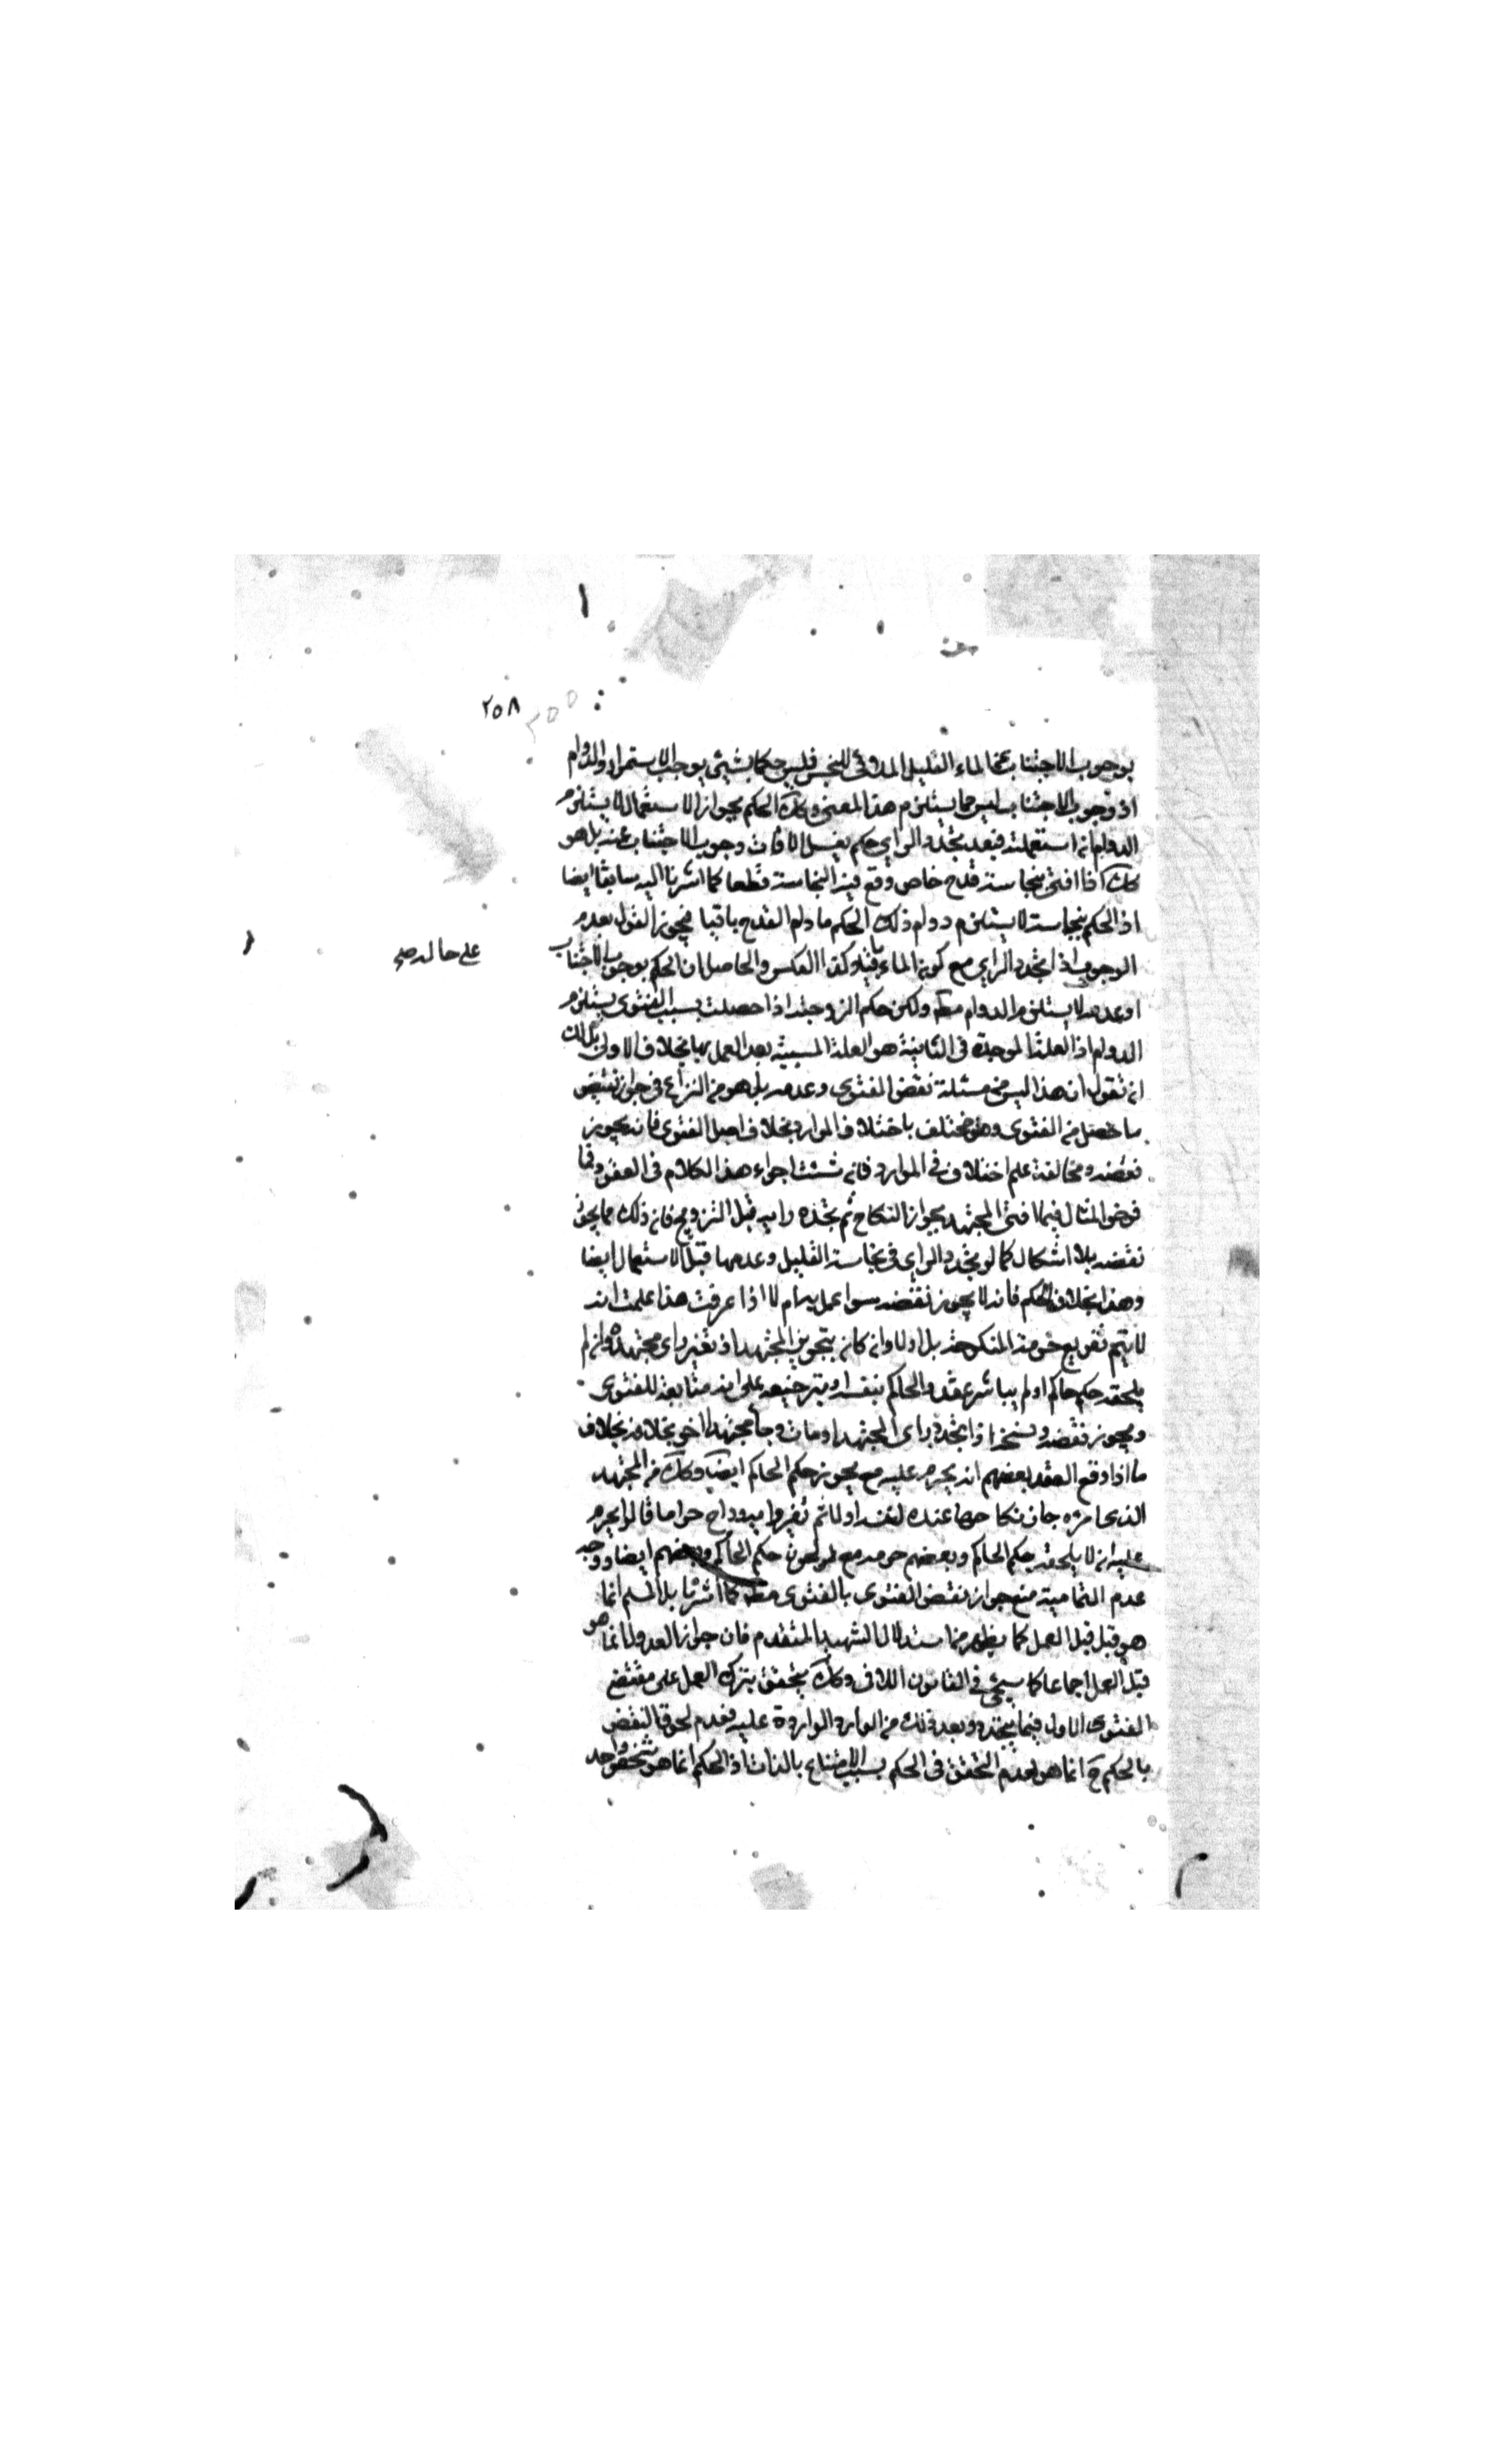 ٢٥٨
٢٥٥
بوجوب الاجتناب عن الماء القليل الملاقي للنجس فليس حكما بشيئ يوجب الاستمرار والدوام
اذ وجوب الاجتناب ليس مما يستلزم هذا المعنى وكك الحكم بجواز الاستعمال لا يستلزم
الدوام استعملته فبعد تجدد الراي حكم بغسل الاقات وجوب الاجتناب عنه بل هو
كك اذا افتى بنجاسة قدح خاص وقع فيه النجاسة قطعا كما اشرنا اليه سابقا ايضا
اذ الحكم بنجاسته لا يستلزم دوام ذلك الحكم مادام القدح باقيا فيجوز القول بعدم
الوجوب اذا تجدد الراي مع كون الماء باقيا وكذا العكس والحاصل ان الحكم بوجوب الاجتناب
على حاله صح
او عدمه لا يستلزم الدوام مطه ولكن حكم الزوجية اذا حصلت بسبب الفتوى يستلزم
الدوام اذ العلة الموجدة في الثانية هو العلة المبقية بعد العمل بها بخلاف الاولى بل لك
ان تقول ان هذا ليس من مسئلة نقض الفتوى وعدمه بل هو من النزاع في جواز نقض
ما حصل من الفتوى وهو مختلف باختلاف الموارد بخلاف اصل الفتوى فانه يجوز
نقضه ومخالفته علم اختلاف في الموارد فان شئت اجراء هذا الكلام في العقود فما
فرض المثال فيما افتى المجتهد بجواز النكاح ثم تجدد رايه قبل التزويج فان ذلك مما يجوز
نقضه بلا اشكال كما لو تجدد الراي في نجاسة القليل وعدمها قبل الاستعمال ايضا
وهذا بخلاف الحكم فانه لا يجوز نقضه سوا عمل به ام لا اذا عرفت هذا علمت انه
لا يتم تفريع حرمة المنكوحة بلا ولي وان كان بتجويز المجتهد اذ تغير راى مجتهده وان لم
يلحقه حكم حاكم او لم يباشر عقده الحاكم بنفسه او بترخيصه على انه متابعة للفتوى
ويجوز نقضه وينسخ اذا تجدد راى المجتهد او مات وجا مجتهد اخر بخلافه بخلاف
ما اذا وقع العقد بعضهم انه يحرم عليه مع تجويز حكم الحاكم ايضا وكك من المجتهد
الذي جاز نكاحها عنده لنفسه اولا ثم تغير رايه وراح حراما قالوا يحرم
عليه ان لا يلحقه حكم الحاكم وبعضهم حرمه مع لحوق حكم الحاكم وبعضهم ايضا ووجه
عدم التمامية منع جواز نقض الفتوى بالفتوى مطه كما اشرنا بل المسلم انما
هو قبل قبل العمل كما يظهر من استدلال الشهيد المتقدم فان جواز العدول انما هو
قبل العمل اجماعا كما سيجئ في القانون الاتي وكك يتحقق بترك العمل على مقتضى
الفتوى الاول فيما يتجدد وبعد ذلك من الموارد الواردة عليه فعدم لحوق النقض
بالحكم ح انما هو لعدم التحقق في الحكم بسبب الامتناع بالذات اذ الحكم انما هو شخص واحد